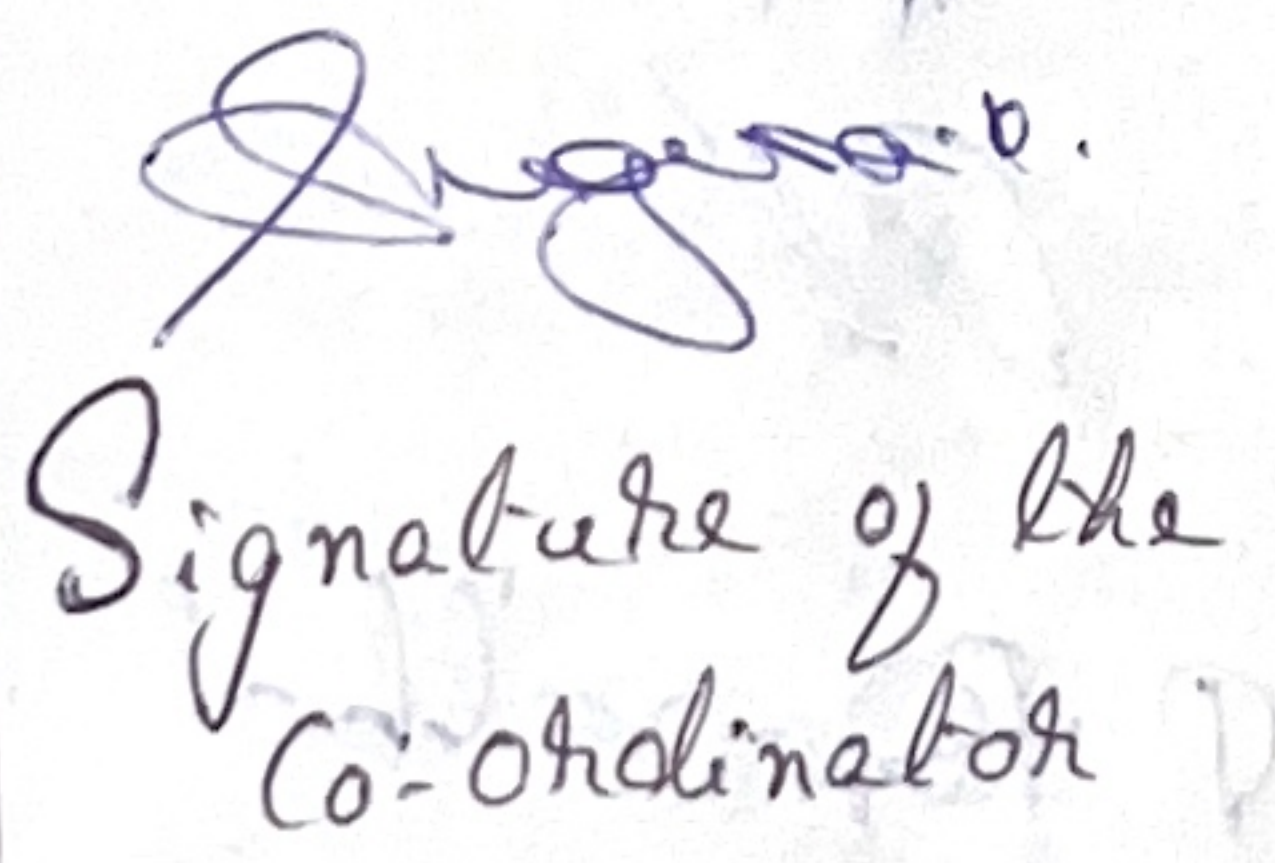 Signature of the
Co-ordinator